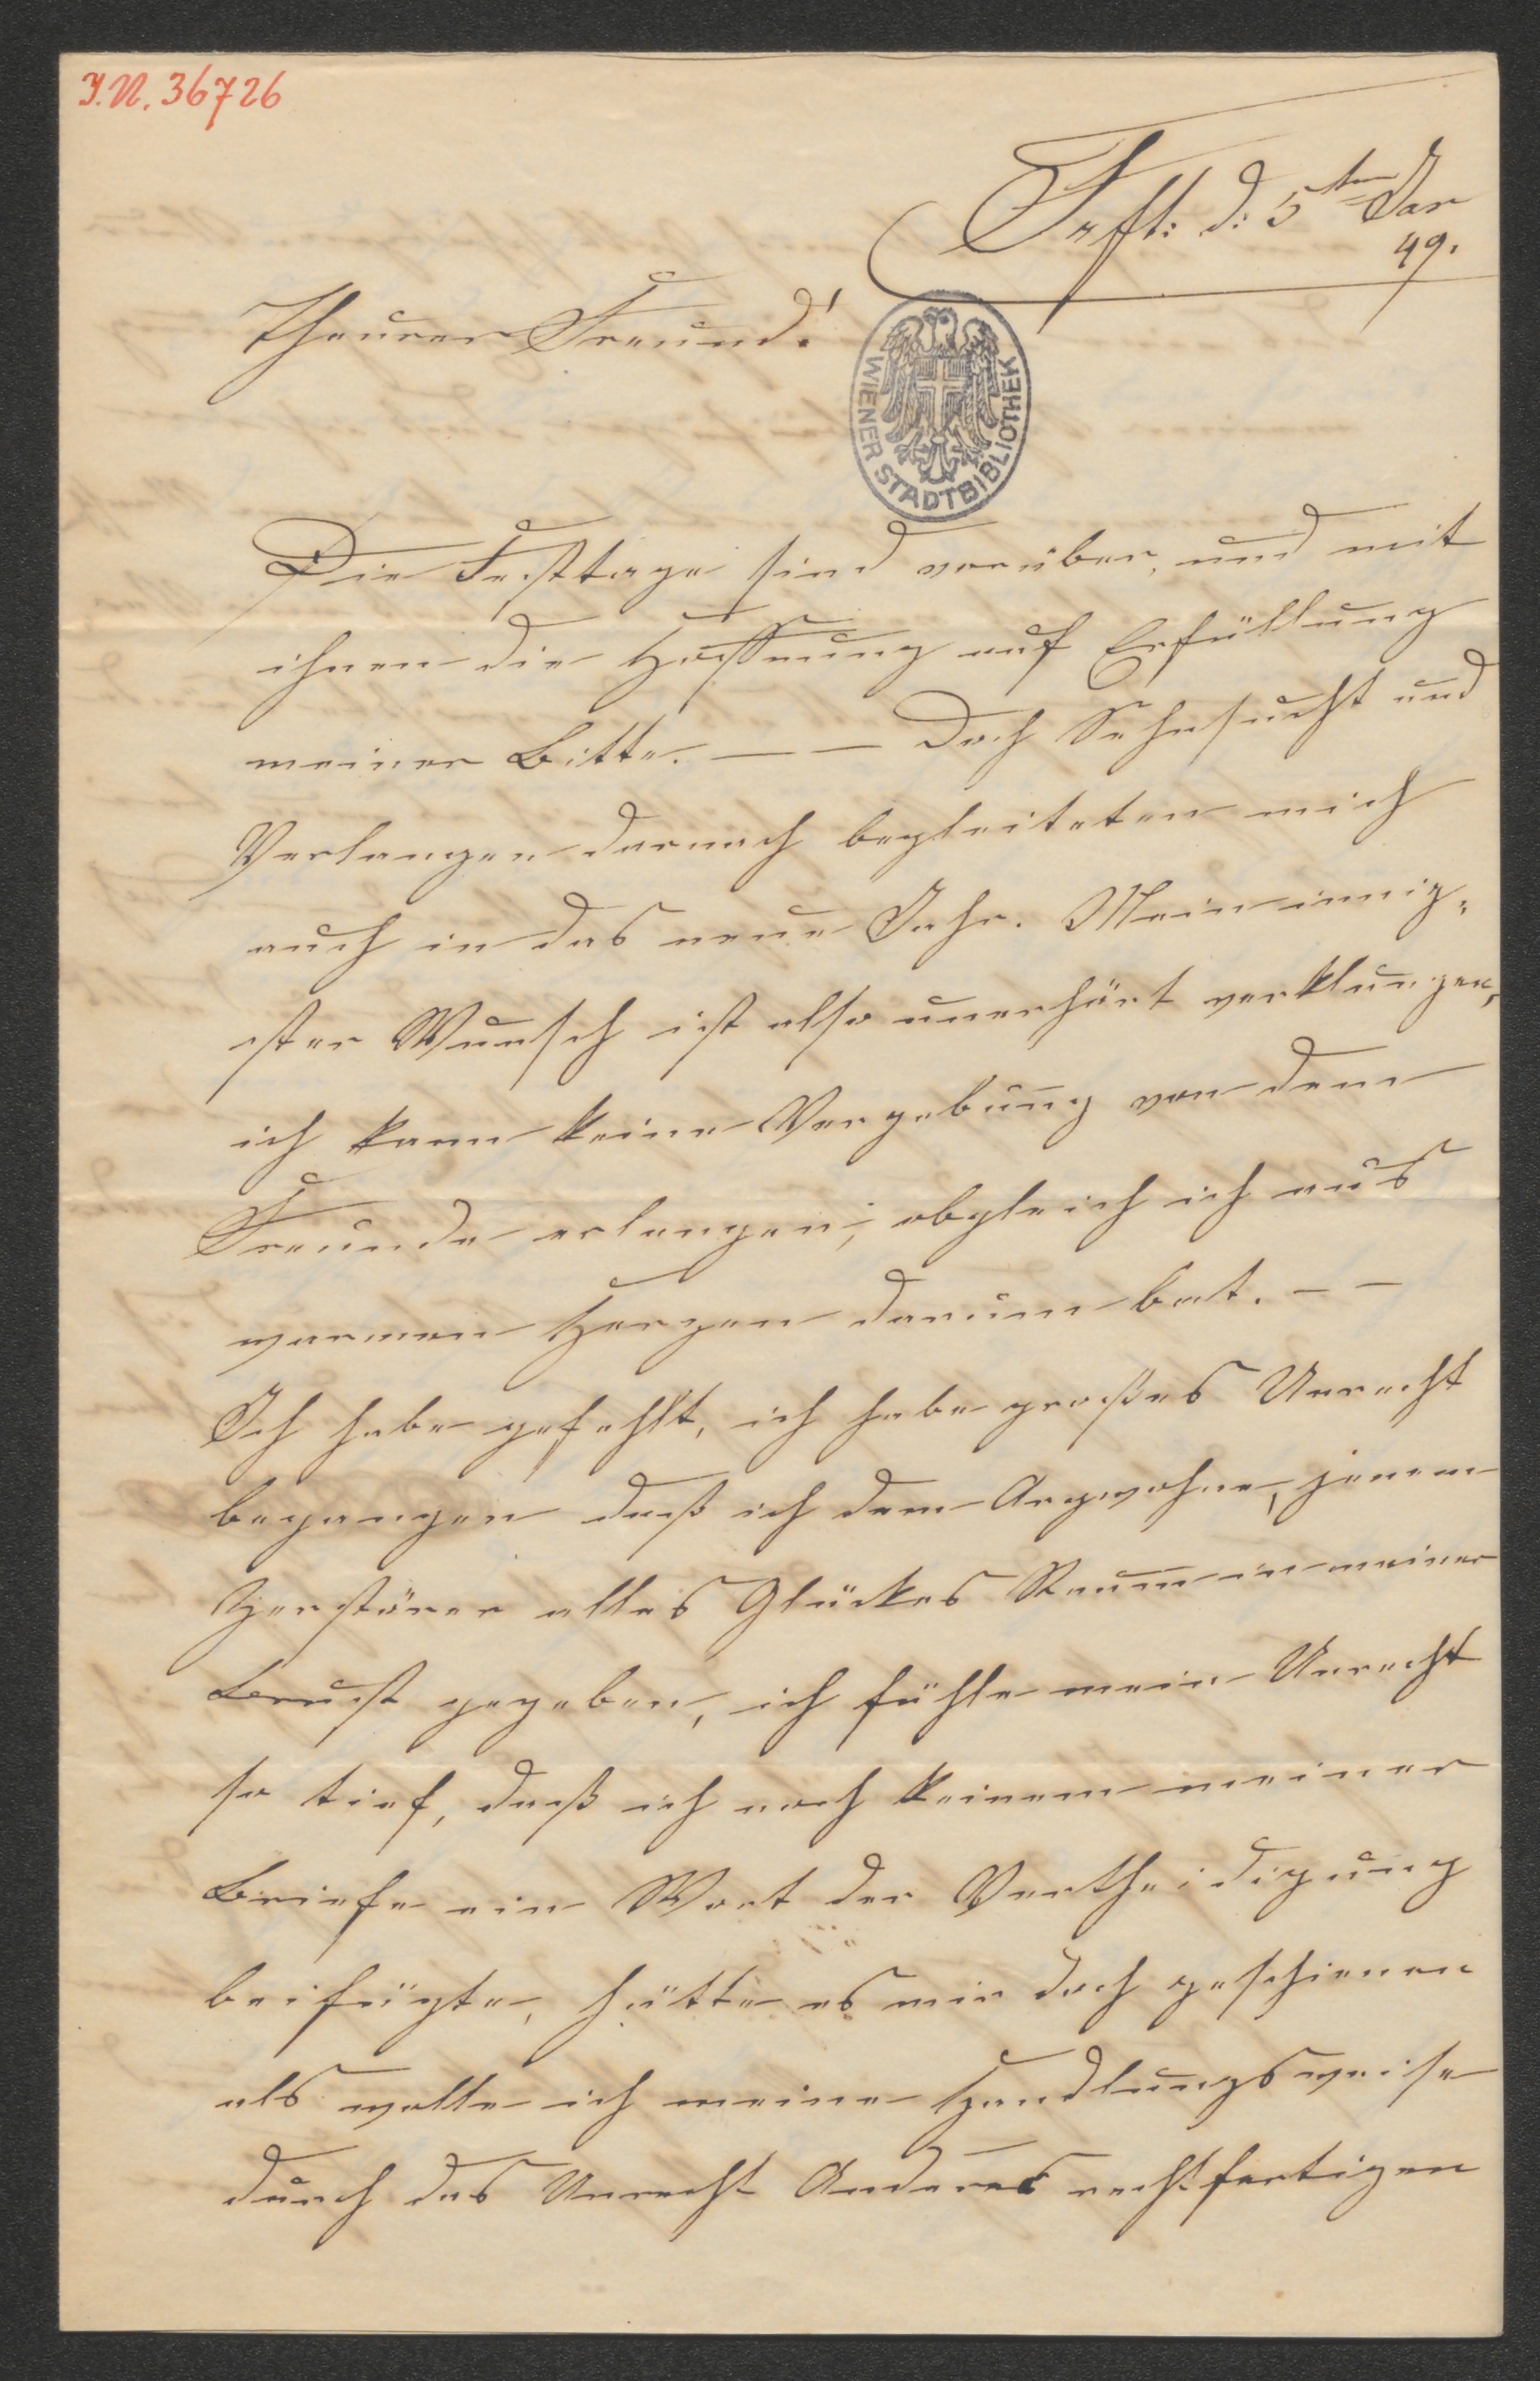 I.N. 36726
Frft: d: 5ten Jan
49.
Theurer Freund!
WIENER STADTBIBLIOTHEK
Die Festtage sind vorüber, und mit
ihnen die Hoffnung auf Erfüllung
meiner Bitte. — — Doch Sehnsucht und
Verlangen darnach begleiteten mich
auch in das neue Jahr. Mein innig-
ster Wunsch ist also unerhört verklungen,
ich kann keine Vergebung von dem
Freunde erlangen, obgleich ich aus
warmen Herzen darum bat. — —
Ich habe gefehlt, ich habe großes Unrecht
begangen daß ich dem Argwohne, jenem
Zerstörer alles Glückes Raum in meiner
Brust gegeben, ich fühle mein Unrecht
so tief, daß ich noch keinem meiner
Briefe ein Wort der Vertheidigung
beifügte, hätte es mir doch geschienen
als wolle ich meine Handlungsweise
durch das Unrecht Anderer rechtfertigen